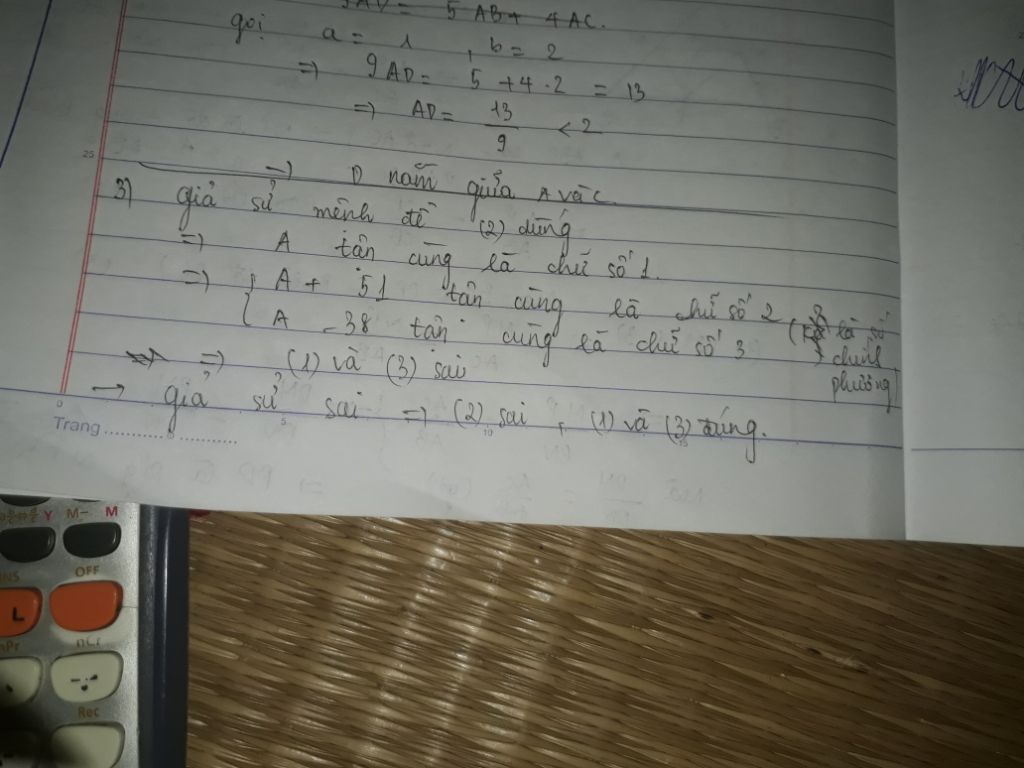 9AD = 5 AB + 4 AC.
gọi a = 1 , b = 2
=> 9AD = 5 + 4 . 2 = 13
=> AD = 13/9 < 2
25
=> D nằm giữa A và C
3) giả sử mệnh đề (2) đúng
=> A tận cùng là chữ số 1.
=> { A + 51 tận cùng là chữ số 2
A - 38 tận cùng là chữ số 3
là số
chính
phương
=> (1) và (3) sai
→ giả sử sai => (2) sai , (1) và (3) đúng.
0 5 10
Trang
Y M- M
OFF
L
nCr
Rec